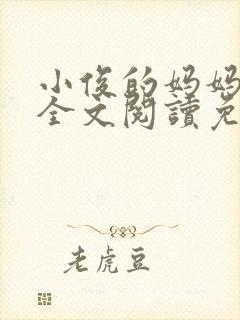 小俊的妈妈
全文閱讀免
老虎豆